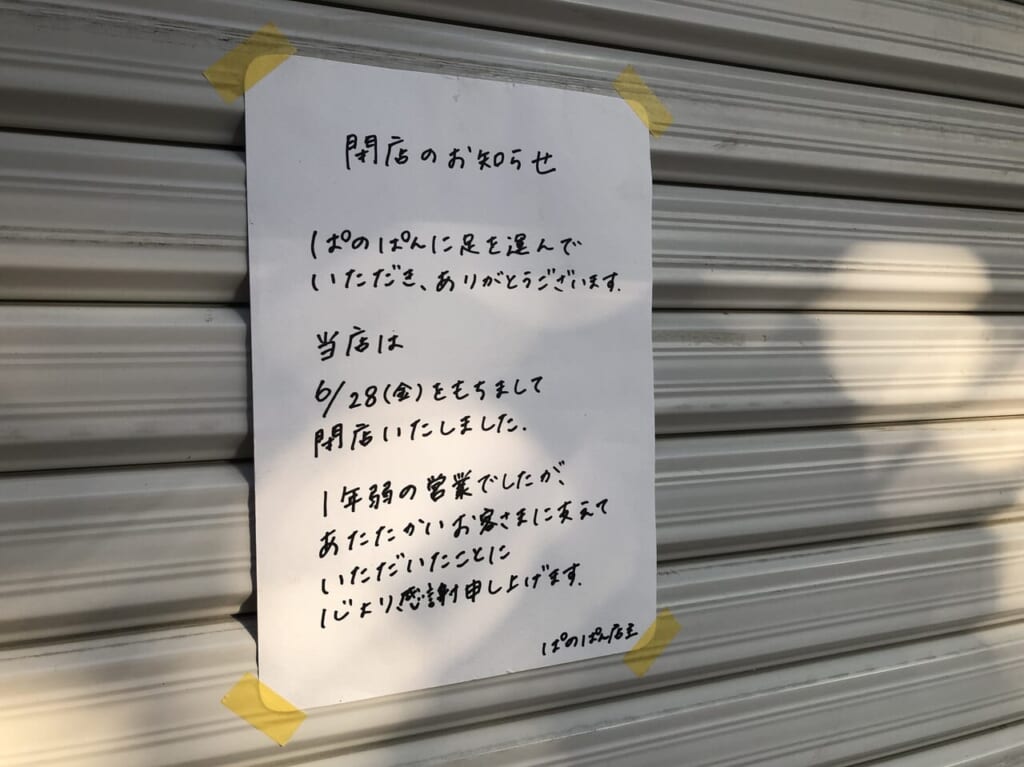 閉店のお知らせ
ぱのぱんに足を運んで
いただき、ありがとうございます.
当店は
6/28(金)をもちまして
閉店いたしました.
1年弱の営業でしたが、
あたたかいお客さまに支えて
いただいたことに
心より感謝申し上げます.
ぱのぱん店主